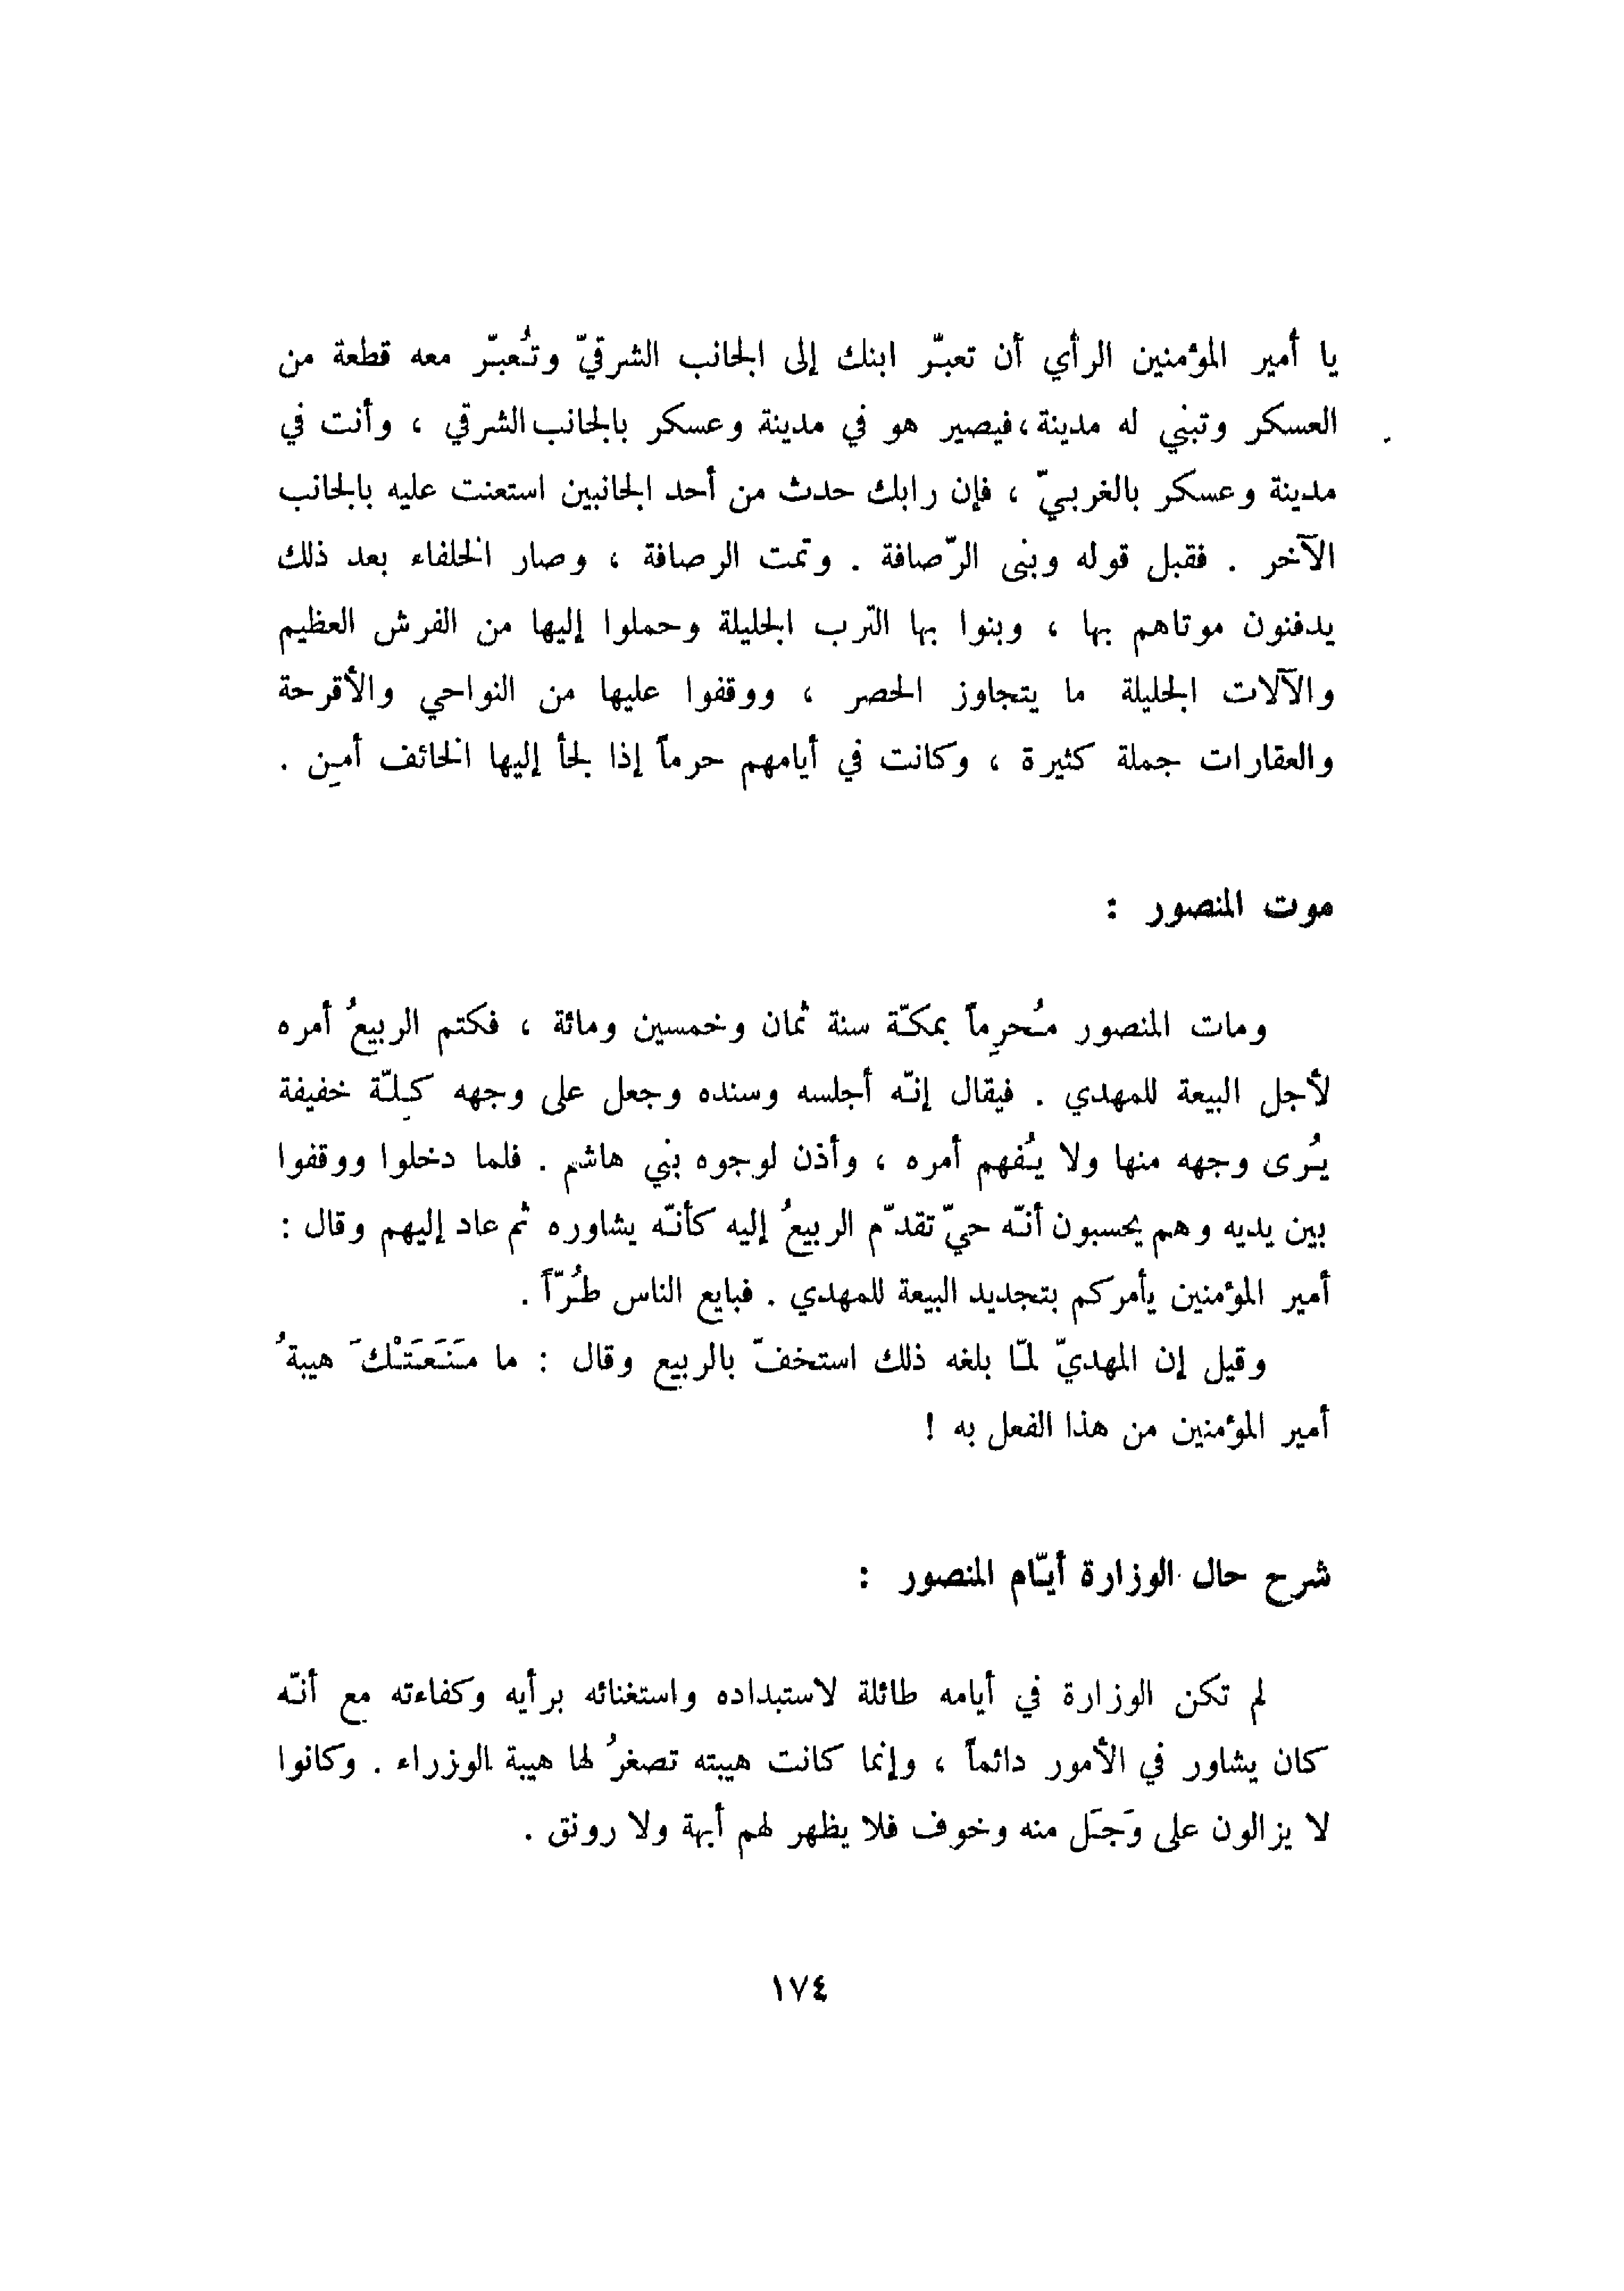 يا أمير المؤمنين الرأي أن تعبّر ابنك إلى الجانب الشرقيّ وتُعبّر معه قطعة من
العسكر وتبني له مدينة ، فيصير هو في مدينة وعسكر بالجانب الشرقي ، وأنت في
مدينة وعسكر بالغربيّ ، فإن رابك حدث من أحد الجانبين استعنت عليه بالجانب
الآخر . فقبل قوله وبنى الرّصافة . وتمت الرصافة ، وصار الخلفاء بعد ذلك
يدفنون موتاهم بها ، وبنوا بها الترب الجليلة وحملوا إليها من الفرش العظيم
والآلات الجليلة ما يتجاوز الحصر ، ووقفوا عليها من النواحي والأقرحة
والعقارات جملة كثيرة ، وكانت في أيامهم حرماً إذا لجأ إليها الخائف أمِن .
موت المنصور :
ومات المنصور مُحرِماً بمكّة سنة ثمان وخمسين ومائة ، فكتم الربيعُ أمره
لأجل البيعة للمهدي . فيقال إنّه أجلسه وسنده وجعل على وجهه كِلّة خفيفة
يُرى وجهه منها ولا يُفهم أمره ، وأذن لوجوه بني هاشم . فلما دخلوا ووقفوا
بين يديه وهم يحسبون أنّه حيّ تقدّم الربيعُ إليه كأنّه يشاوره ثم عاد إليهم وقال :
أمير المؤمنين يأمركم بتجديد البيعة للمهدي . فبايع الناس طُرّاً .
وقيل إن المهديّ لمّا بلغه ذلك استخفّ بالربيع وقال : ما مَنَعَتْكَ هيبةُ
أمير المؤمنين من هذا الفعل به !
شرح حال الوزارة أيّام المنصور :
لم تكن الوزارة في أيامه طائلة لاستبداده واستغنائه برأيه وكفاءته مع أنّه
كان يشاور في الأمور دائماً ، وإنما كانت هيبته تصغرُ لها هيبة الوزراء . وكانوا
لا يزالون على وَجَل منه وخوف فلا يظهر لهم أبهة ولا رونق .
١٧٤